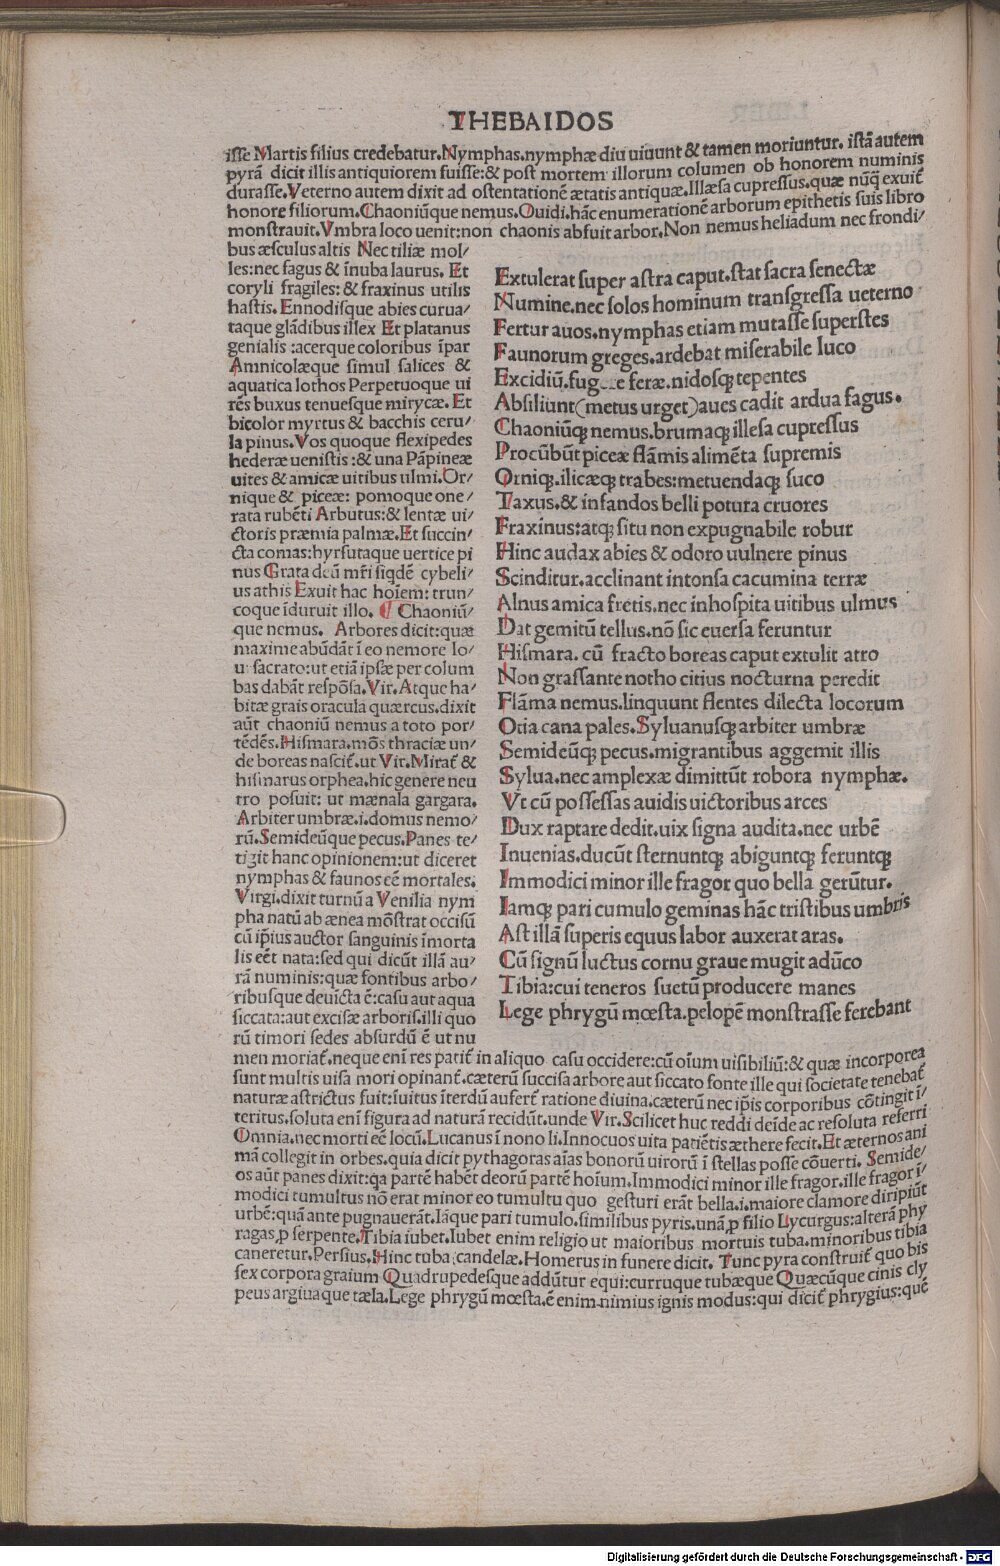 THEBAIDOS
isse Martis filius credebatur.Nymphas.nymphæ diu uiuunt & tamen moriuntur. istã autem
pyrã dicit illis antiquiorem fuisse:& post mortem illorum columen ob honorem numinis
durasse.Veterno autem dixit ad ostentationẽ ætatis antiquæ.Illæsa cupressus.quæ nũq̃ exuit̃
honorẽ filiorum.Chaoniũque nemus.Ouidi.hãc enumerationẽ arborum epithetis suis libro
monstrauit.Vmbra loco uenit:non chaonis abfuit arbor.Non nemus heliadum nec frondi/
bus æsculus altis Nec tiliæ mol/
les:nec fagus & ĩnuba laurus. Et
coryli fragiles: & fraxinus utilis
hastis. Ennodisque abies curua/
taque glãdibus illex Et platanus
genialis :acerque coloribus ĩpar
Amnicolæque simul salices &
aquatica lothos Perpetuoque ui
rẽs buxus tenuesque mirycæ. Et
bicolor myrtus & bacchis ceru/
la pinus.Vos quoque flexipedes
hederæ uenistis :& una Pãpineæ
uites & amicæ uitibus ulmi.Or/
nique & piceæ: pomoque one/
rata rubẽti Arbutus:& lentæ ui/
ctoris præmia palmæ.Et succin/
cta comas:hyrsutaque uertice pi
nus Grata deũ mr̃i siqdẽ cybeli/
us athis Exuit hac hoĩem: trun/
coque ĩduruit illo. ¶ Chaoniũ/
que nemus. Arbores dicit:quæ
maxime abũdãt ĩ eo nemore Io/
ui sacrato:ut etiã ipsæ per colum
bas dabãt respõsa.Vir.Atque ha/
bitæ grais oracula quærcus.dixit
aũt chaoniũ nemus a toto por/
tẽdẽs.Hismara.mõs thraciæ un/
de boreas nascit̃.ut Vir.Mirat̃ &
hismarus orphea.hic genere neu
tro posuit: ut mænala gargara.
Arbiter umbræ.i.domus nemo/
rũ.Semideũque pecus.Panes te/
tigit hanc opinionem:ut diceret
nymphas & faunos eẽ mortales.
Virgi.dixit turnũ a Venilia nym
pha natũ ab ænea mõstrat occisũ
cũ ip̃ius auctor sanguinis ĩmorta
lis eẽt nata:sed qui dicũt illã au/
rã numinis:quæ fontibus arbo/
ribusque deuicta ẽ:casu aut aqua
siccata:aut excisæ arboris.illi quo
rũ timori sedes absurdũ ẽ ut nu
men moriat̃.neque enĩ res patit̃ in aliquo casu occidere:cũ oĩum uisibiliũ:& quæ incorporea
sunt multis uisa mori opinant̃.cæterũ succisa arbore aut siccato fonte ille qui societate tenebat̃
naturæ astrictus fuit:ĩuitus ĩterdũ aufert̃ ratione diuina.cæterũ nec ip̃is corporibus cõtingit ĩ/
teritus.soluta enĩ figura ad naturã recidũt.unde Vir.Scilicet huc reddi deĩde ac resoluta referri
Omnia.nec morti eẽ locũ.Lucanus ĩ nono li.Innocuos uita patiẽtis æthere fecit.Et æternos ani
mã collegit in orbes.quia dicit pythagoras aĩas bonorũ uirorũ ĩ stellas posse cõuerti. Semide/
os aũt panes dixit:qa partẽ habẽt deorũ partẽ hoium.Immodici minor ille fragor.ille fragor ĩ/
modici tumultus nõ erat minor eo tumultu quo gesturi erãt bella.i.maiore clamore diripiũt
urbẽ:quã ante pugnauerãt.Iãque pari tumulo.similibus pyris.unã ꝑ filio Lycurgus:alterã phy
ragas ꝑ serpente.Tibia iubet.Iubet enim religio ut maioribus mortuis tuba.minoribus tibia
caneretur.Persius.Hinc tuba candelæ.Homerus in funere dicit. Tunc pyra construit̃ quo bis
sex corpora graium Quadrupedesque addũtur equi:curruque tubæque Quæcũque cinis cly
peus argiuaque tæla.Lege phrygũ mœsta.ẽ enim.nimius ignis modus:qui dicit̃ phrygius:quẽ
Extulerat super astra caput.stat sacra senectæ
Numine.nec solos hominum transgressa ueterno
Fertur auos.nymphas etiam mutasse superstes
Faunorum greges.ardebat miserabile luco
Excidiũ. feræ.nidosq; tepentes
Absiliunt(metus urget)aues cadit ardua fagus.
Chaoniũq; nemus.brumaq; illesa cupressus
Procũbũt piceæ flãmis alimẽta supremis
Orniq;.ilicæq; trabes:metuendaq; suco
Taxus.& infandos belli potura cruores
Fraxinus:atq; situ non expugnabile robur
Hinc audax abies & odoro uulnere pinus
Scinditur.acclinant intonsa cacumina terræ
Alnus amica fretis.nec inhospita uitibus ulmus
Dat gemitũ tellus.nõ sic euersa feruntur
Hismara. cũ fracto boreas caput extulit atro
Non grassante notho citius nocturna peredit
Flãma nemus.linquunt flentes dilecta locorum
Otia cana pales.Syluanusq; arbiter umbræ
Semideũq; pecus.migrantibus aggemit illis
Sylua.nec amplexæ dimittũt robora nymphæ.
Vt cũ possessas auidis uictoribus arces
Dux raptare dedit.uix signa audita.nec urbẽ
Inuenias.ducũt sternuntq; abiguntq; feruntq;
Immodici minor ille fragor quo bella gerũtur.
Iamq; pari cumulo geminas hãc tristibus umbris
Ast illã superis equus labor auxerat aras.
Cũ signũ luctus cornu graue mugit adũco
Tibia:cui teneros suetũ producere manes
Lege phrygũ mœsta.pelopẽ monstrasse ferebant
Digitalisierung gefördert durch die Deutsche Forschungsgemeinschaft - DFG